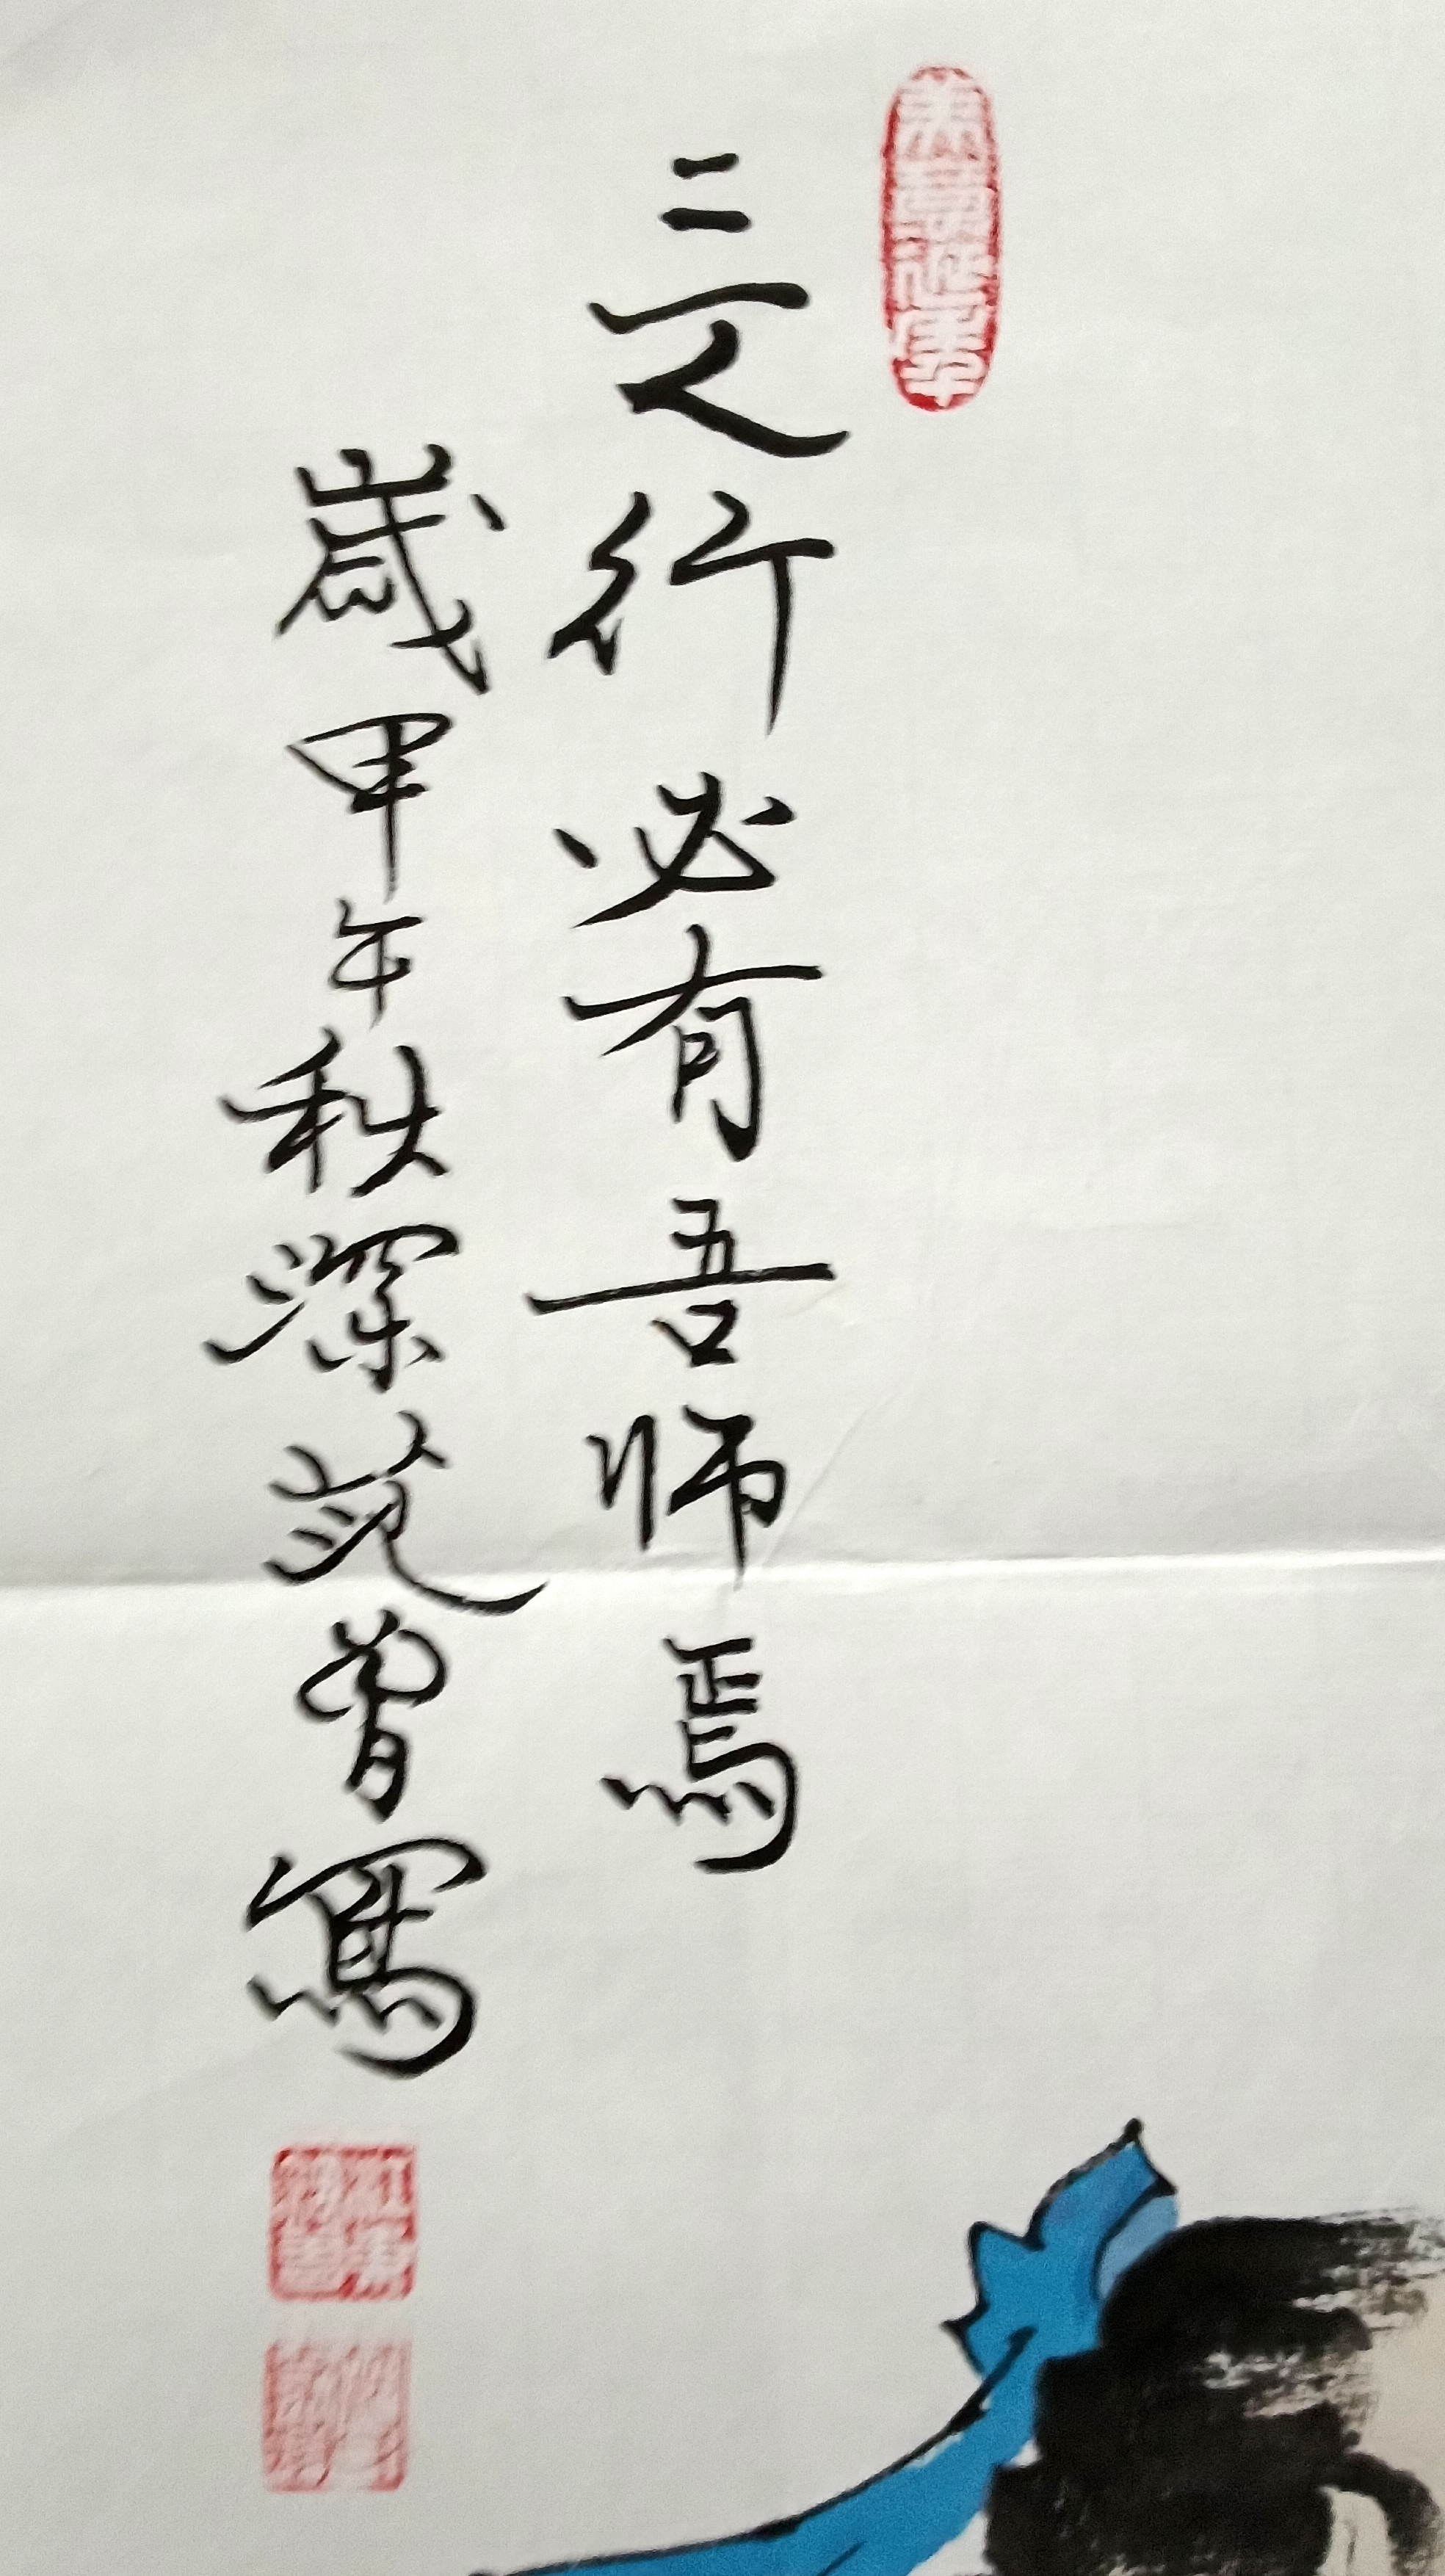 三人行必有吾师焉
歲甲午秋深范曾寫